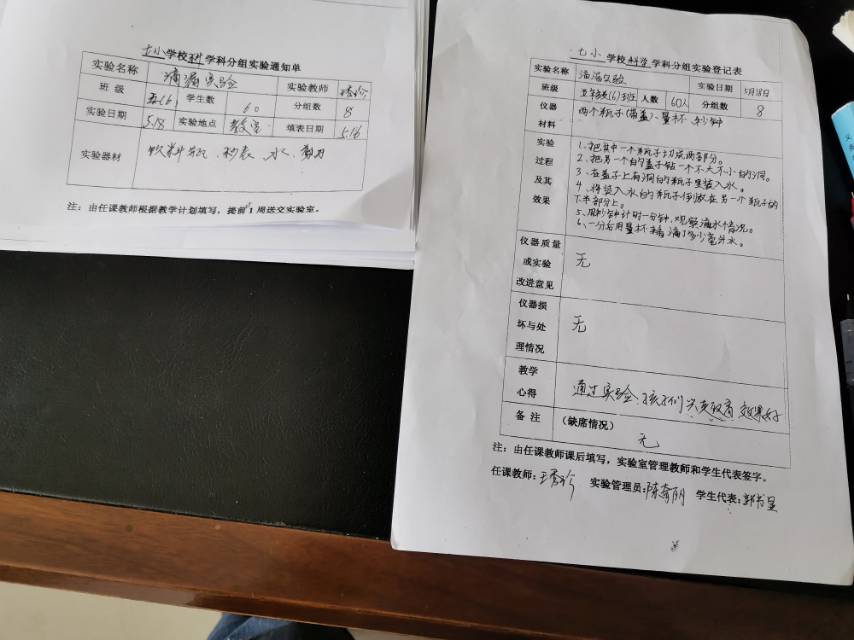 七小学校科学科分组实验通知单
实验名称 滴漏实验 实验教师
班级 五(6) 学生数 60 分组数 8
实验日期 5.18 实验地点 教室 填表日期 5.16
实验器材 饮料瓶、秒表、水、剪刀
注:由任课教师根据教学计划填写,提前1周送交实验室。
七小学校科学学科分组实验登记表
实验名称 滴漏实验 实验日期 5月18日
班级 五年级(6)班 人数 60人 分组数 8
仪器材料 两个瓶子(带盖)、量杯 秒钟
实验过程及其效果
1、把其中一个瓶子切成两部分。
2、把另一个的盖子钻一个不大不小的洞。
3、在盖子上有洞的瓶子里装入水。
4、将装入水的瓶子倒放在另一个瓶子的
下半部分上。
5、用秒钟计时一分钟,观察滴水情况。
6、一分后用量杯 滴了多少毫升水。
仪器质量或实验改进意见 无
仪器损坏与处理情况 无
教学心得 通过实验,孩子们 效果好
备注 (缺席情况)
无
注:由任课教师课后填写,实验室管理教师和学生代表签字。
任课教师: 实验管理员: 学生代表: